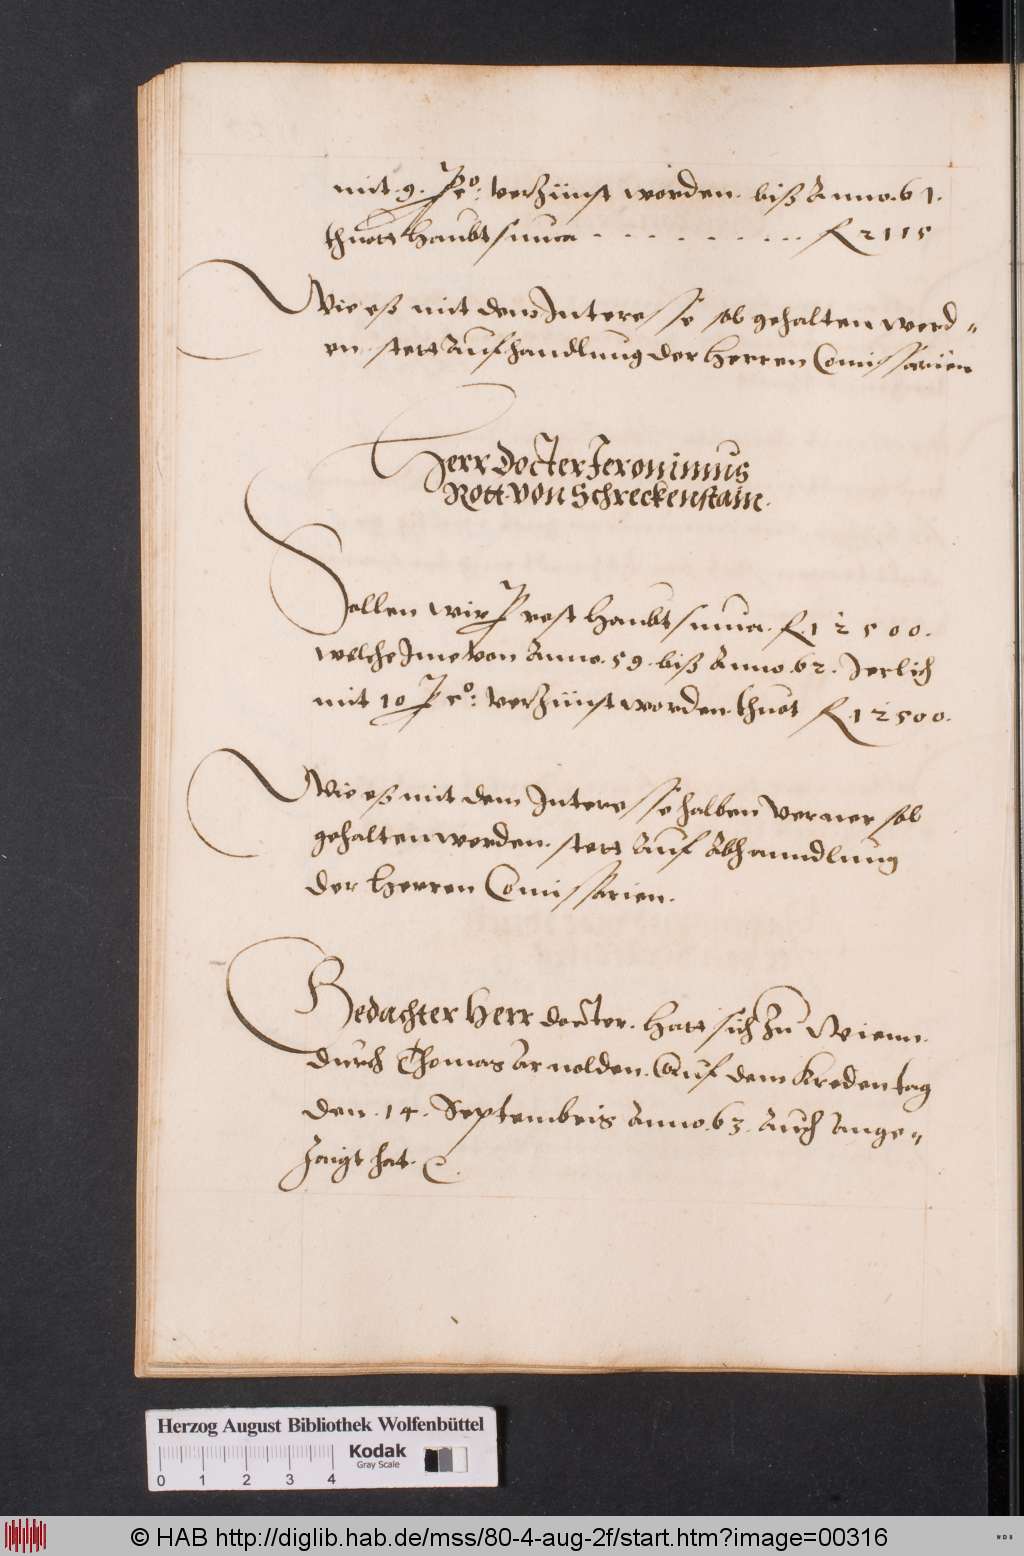 mit .9. P co: verzünst worden. biß Anno. 61.
thuott haubtsuma . . . . . . . . . fl 2115
Wie eß mit dem Interesse sol gehalten werd=
en. stett Auf handlung der herren Comissarien
Herr Docter Jeronimus
Rott. von Schreckenstain.
Sollen wir P rest haubtsuma. fl. 12500.
welche Ime von Anno. 59. biß Anno. 62. Jerlich
mit 10 P co: verzünst worden. thuot fl. 12500.
Wie eß mit dem Interesse halben verner sol
gehalten werden. stett Auf Abhanndlung
der herren Comissarien.
Gedachter Herr docter. hatt sich zu Wienn.
durch Thomas Arnolden. Auf dem kredentag
den .14. Septembris Anno. 63. Auch Ange=
zaigt hat. &.
Herzog August Bibliothek Wolfenbüttel
Kodak
Gray Scale
0 1 2 3 4
© HAB http://diglib.hab.de/mss/80-4-aug-2f/start.htm?image=00316